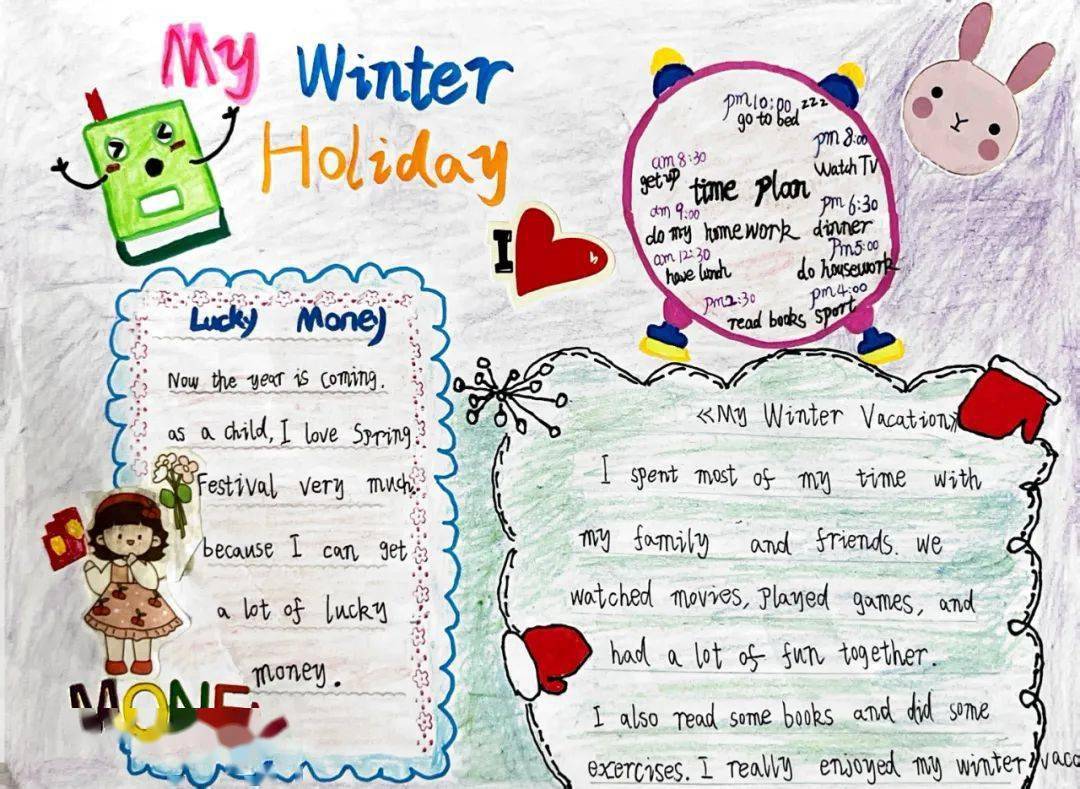 My Winter
Holiday
I
pm 10:00 zzz
go to bed
pm 8:00
Watch TV
am 8:30
get up
time plan
am 9:00
pm 6:30
do my homework
dinner
am 12:30
Pm 5:00
have lunch
do housework
pm 2:30
pm 4:00
read books
sport
Lucky Money
Now the year is coming.
as a child, I love Spring
Festival very much.
because I can get
a lot of lucky
money.
MONE
《My Winter Vacation》
I spent most of my time with
my family and friends. we
watched movies, Played games, and
had a lot of fun together.
I also read some books and did some
exercises. I really enjoyed my winter vaca